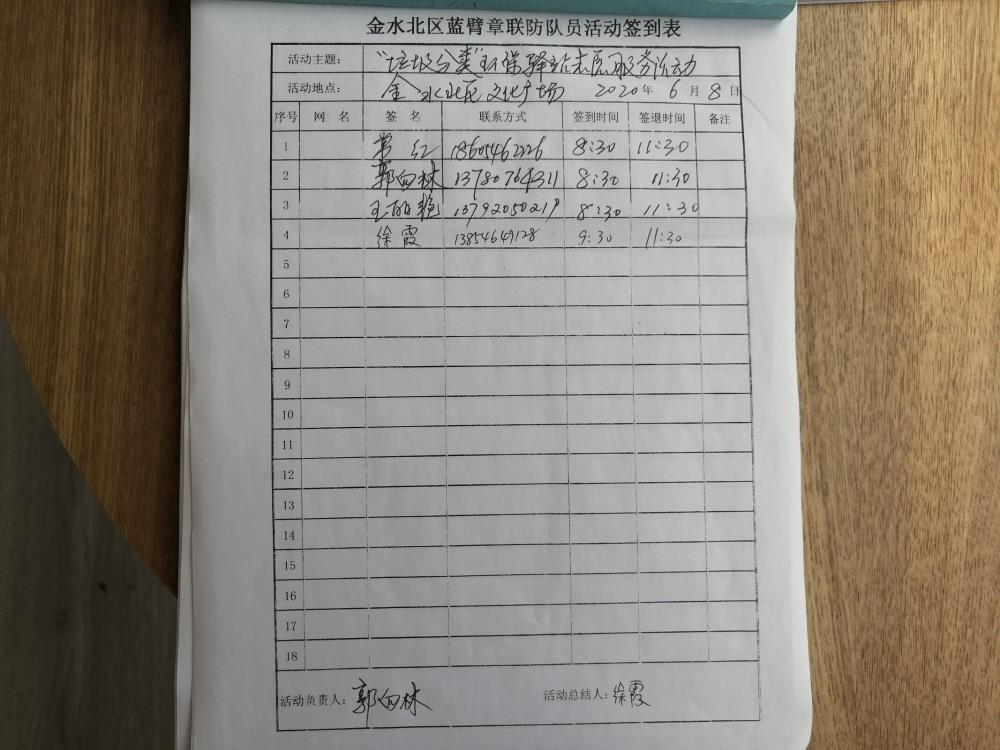 金水北区蓝臂章联防队员活动签到表
活动主题： “垃圾分类”环保驿站志愿服务活动
活动地点： 金水北区文化广场 2020年 6月 8日
序号 网 名 签 名 联系方式 签到时间 签退时间 备注
1 常红 18605462226 8:30 11:30
2 郭向林 13780764311 8:30 11:30
3 王丽艳 13792050219 8:30 11:30
4 徐霞 13854649128 9:30 11:30
5
6
7
8
9
10
11
12
13
14
15
16
17
18
活动负责人：郭向林 活动总结人：徐霞